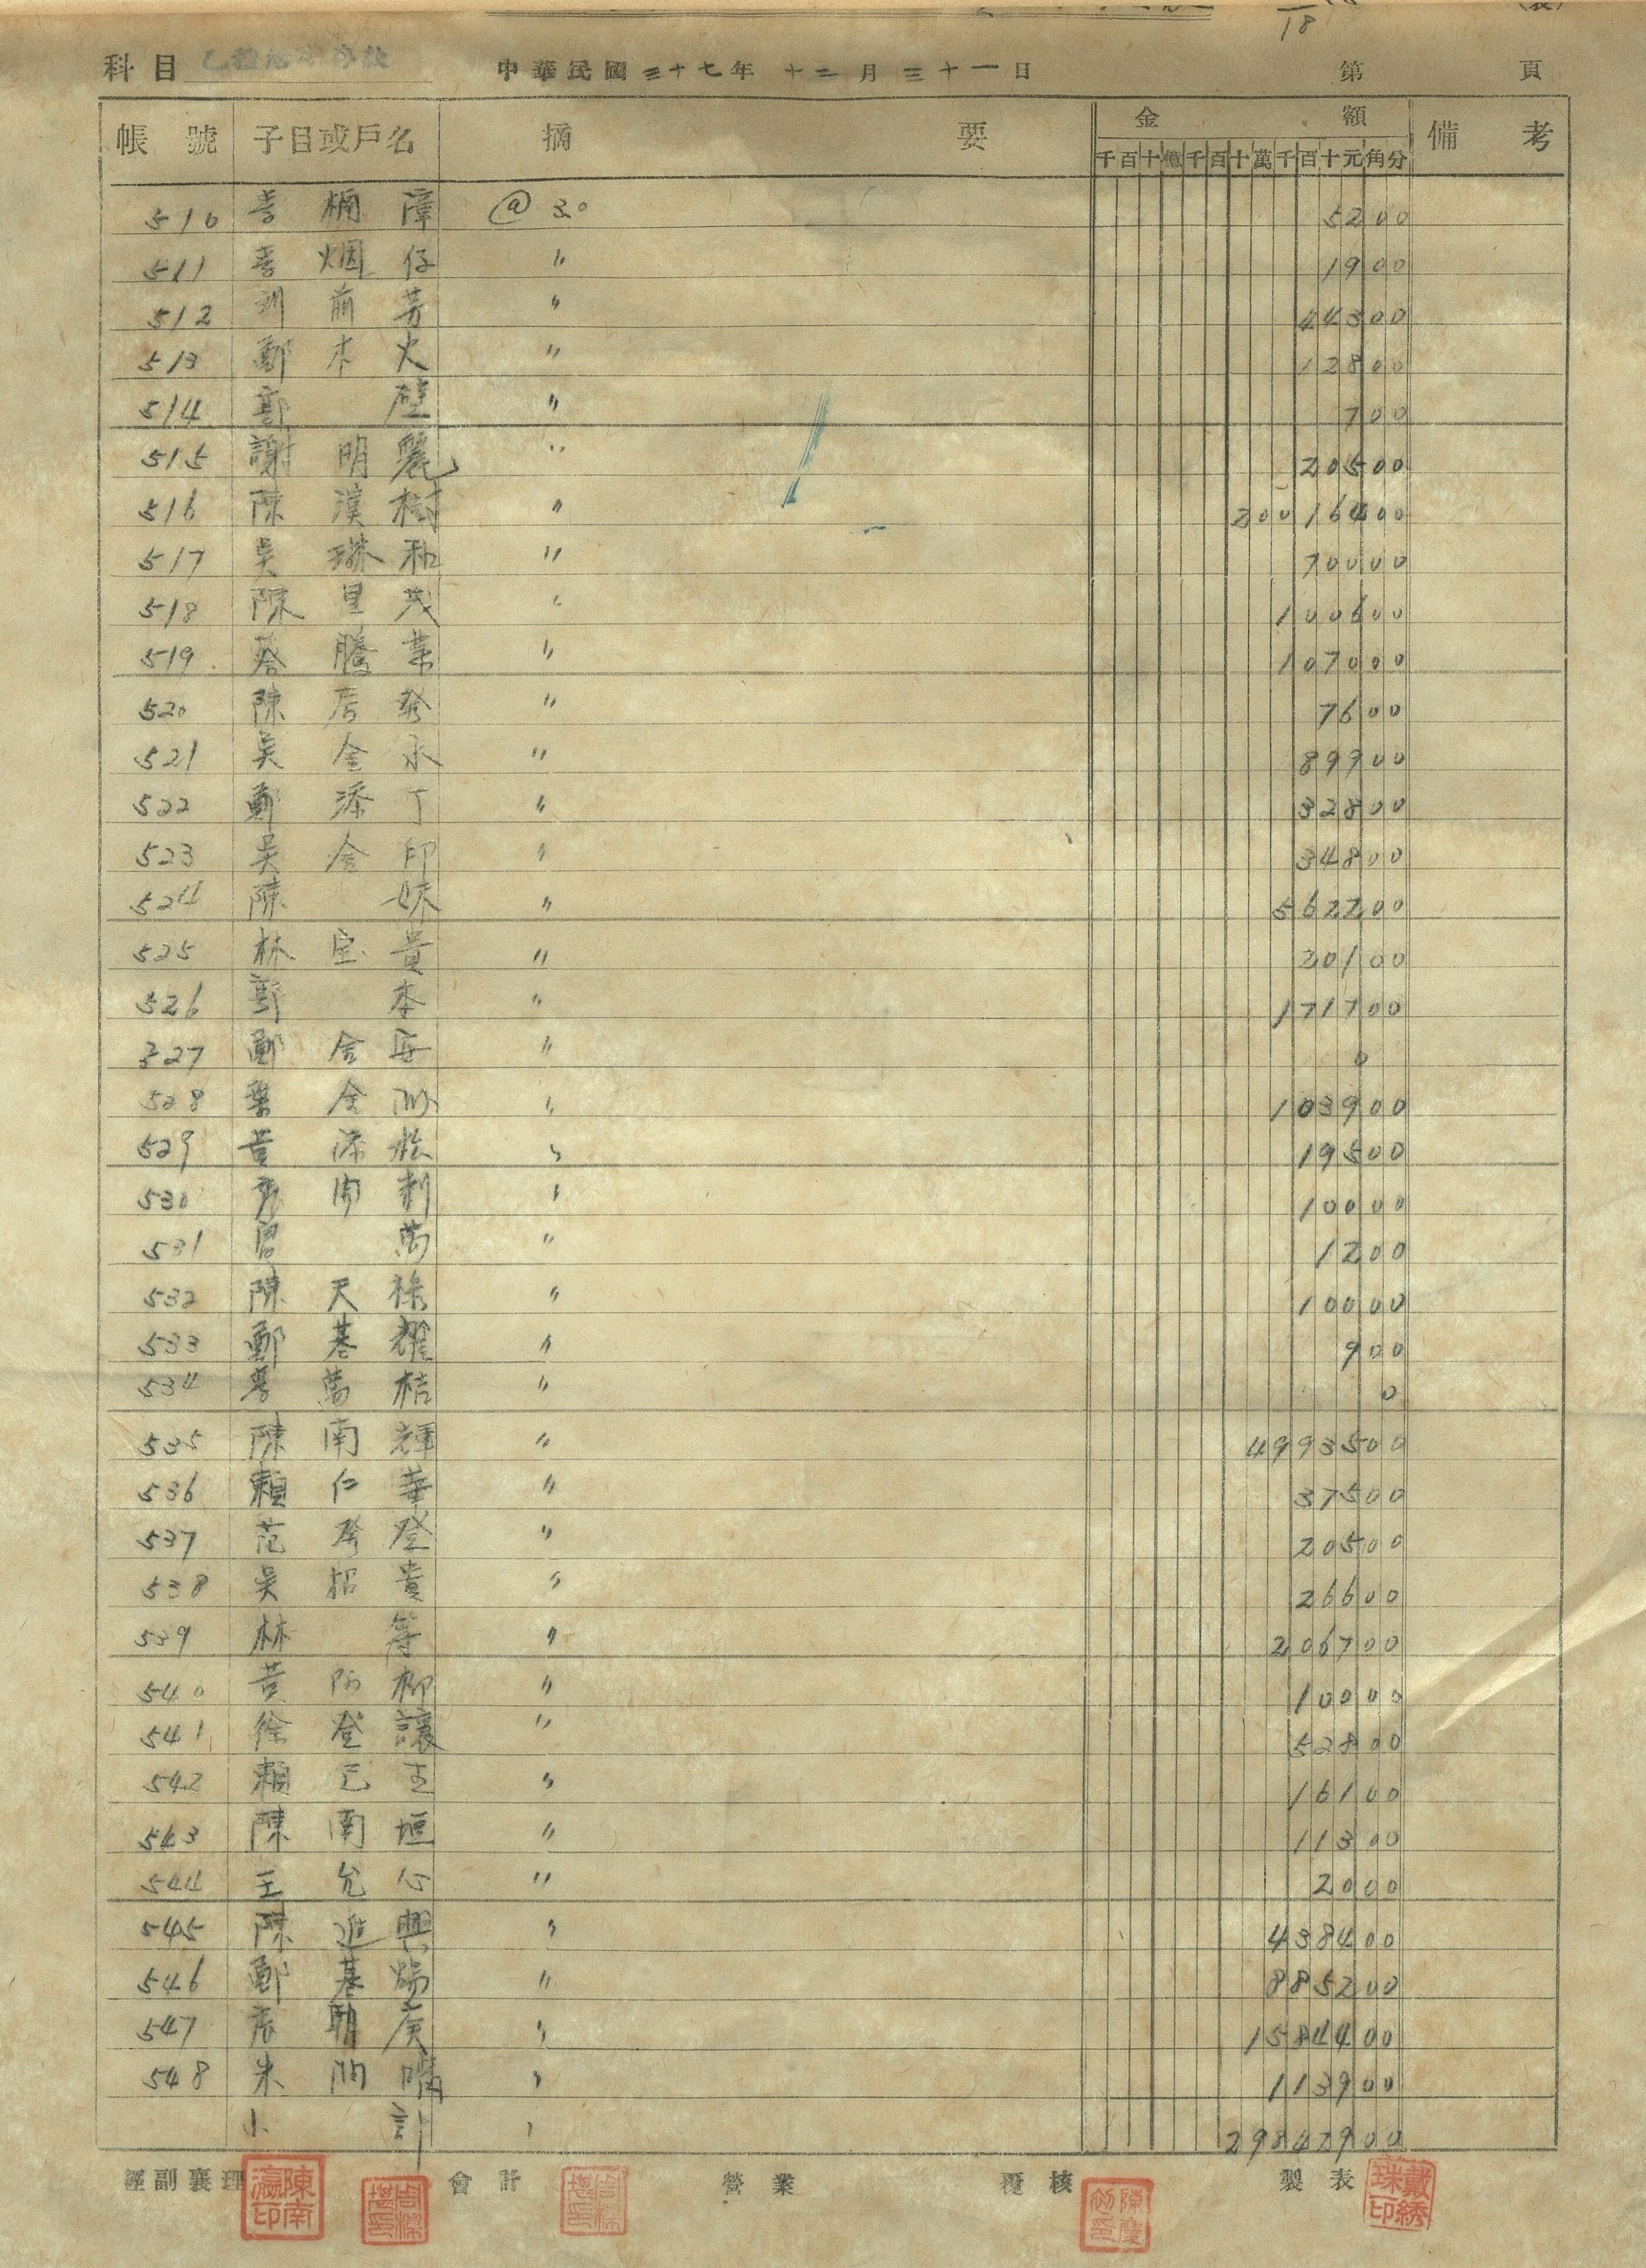 18
科目 乙種活期存款 中華民國三十七年 十二月 三十一日 第 頁
帳號 子目或戶名 摘要 金額 備考
千百十億千百十萬千百十元角分
510 @ 30 5200
511 烟仔 〃 1900
512 前芳 〃 44300
513 鄭木火 〃 12800
514 郭壁 〃 700
515 謝明麗 〃 20500
516 陳漢樹 〃 20016400
517 吳琳和 〃 70000
518 陳里茂 〃 100600
519 蔡騰葉 〃 107000
520 陳 發 〃 7600
521 吳金永 〃 89900
522 鄭添丁 〃 32800
523 吳金印 〃 34800
524 陳妹 〃 562200
525 林宝貴 〃 20100
526 郭本 〃 171700
527 鄭金安 〃 0
528 葉金 〃 103900
529 黃添松 〃 19500
530 開利 〃 10000
531 曾萬 〃 1200
532 陳天祿 〃 10000
533 鄭基耀 〃 900
534 萬桔 〃 0
535 陳南輝 〃 4993500
536 賴仁華 〃 37500
537 范 登 〃 20500
538 吳招貴 〃 26600
539 林等 〃 206700
540 黃阿柳 〃 10000
541 徐登讓 〃 52800
542 賴己 〃 16100
543 陳南垣 〃 11300
544 王允心 〃 2000
545 陳進興 〃 438400
546 鄭基煬 〃 885200
547 朝庚 〃 1584400
548 朱 〃 113900
小計 〃 29847900
經副襄理 陳南瀛印 會計 營業 覆核 製表 戴綉珠印